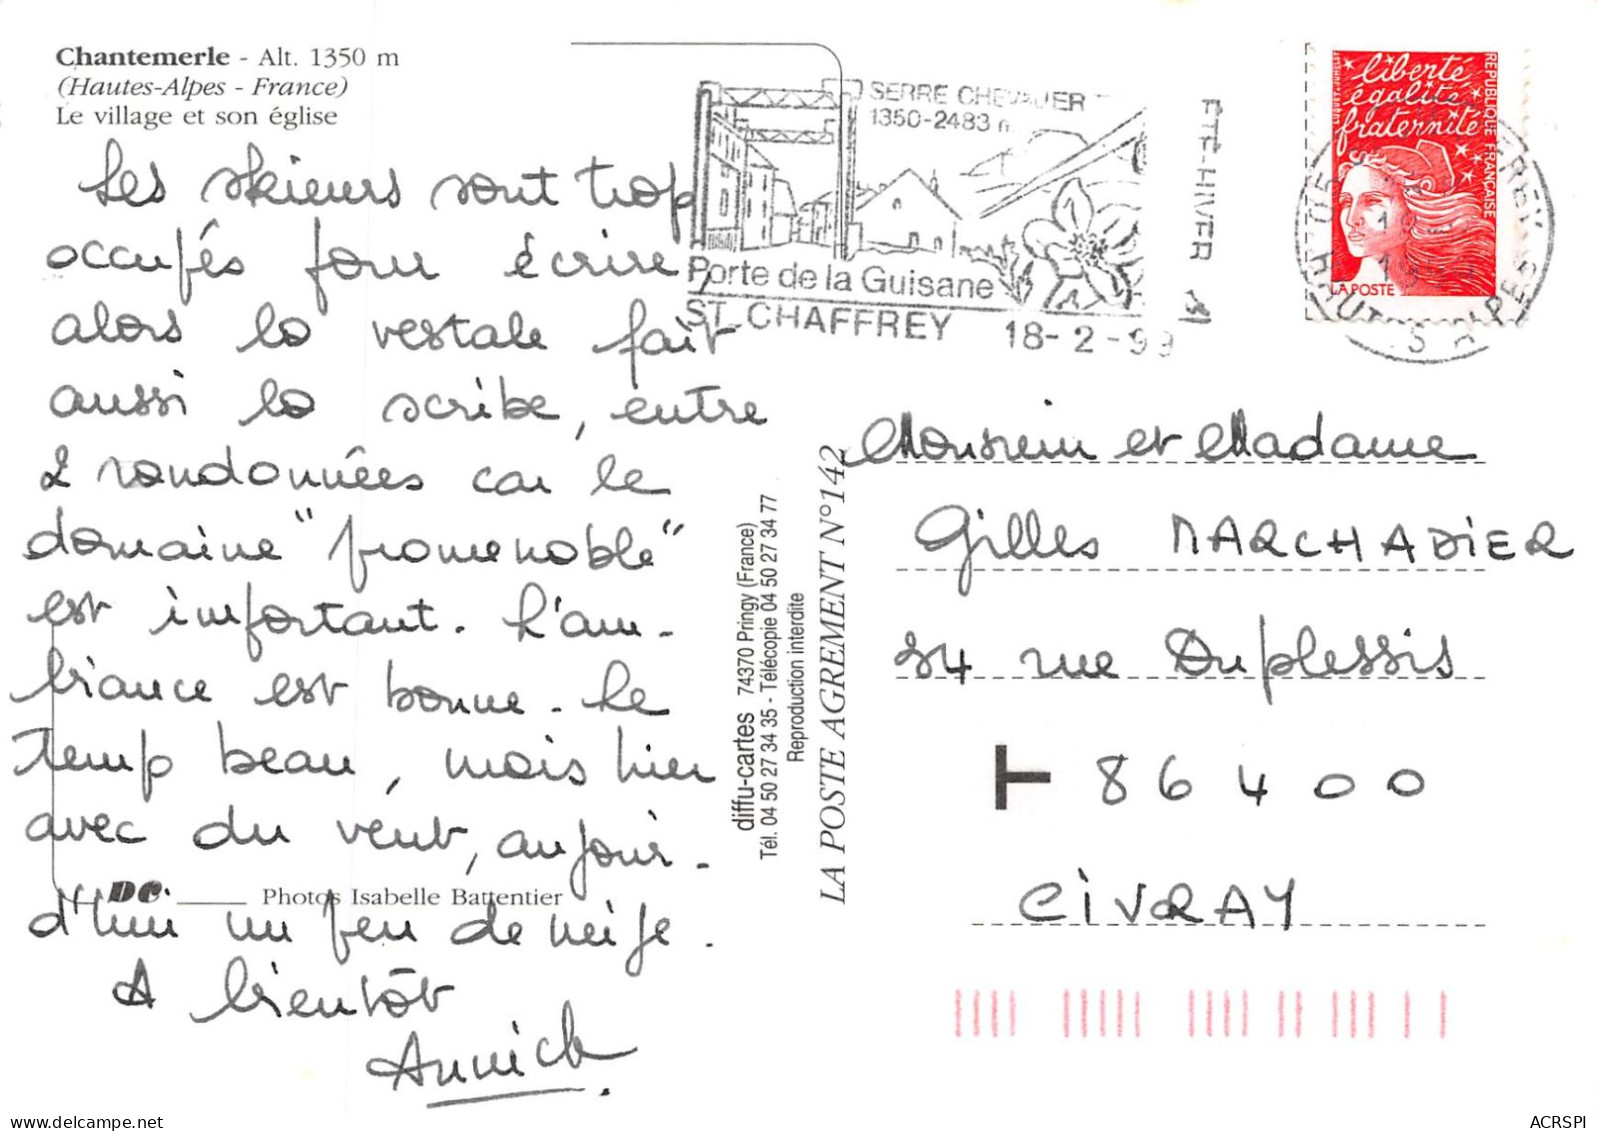 Chantemerle - Alt. 1350 m
(Hautes-Alpes - France)
Le village et son église
Les skieurs sont trop
occupés pour écrire,
alors la vestale fait
aussi la scribe, entre
2 randonnées car le
domaine "promenable"
est important. L'am-
biance est bonne. Le
temp beau, mais hier
avec du vent, aujour-
d'hui un peu de neige.
A bientôt
Annick
DC Photos Isabelle Battentier
diffu-cartes 74370 Pringy (France)
Tél. 04 50 27 34 35 - Télécopie 04 50 27 34 77
Reproduction interdite
LA POSTE AGREMENT N°142
SERRE CHEVALIER
1350-2483 m
ETE-HIVER
Porte de la Guisane
ST CHAFFREY 18-2-99
liberté
égalité
fraternité
REPUBLIQUE FRANÇAISE
LA POSTE
05
HAUTES ALPES
Monsieur et Madame
Gilles MARCHADIER
34 rue Duplessis
T 86400
CIVRAY
ACRSPI